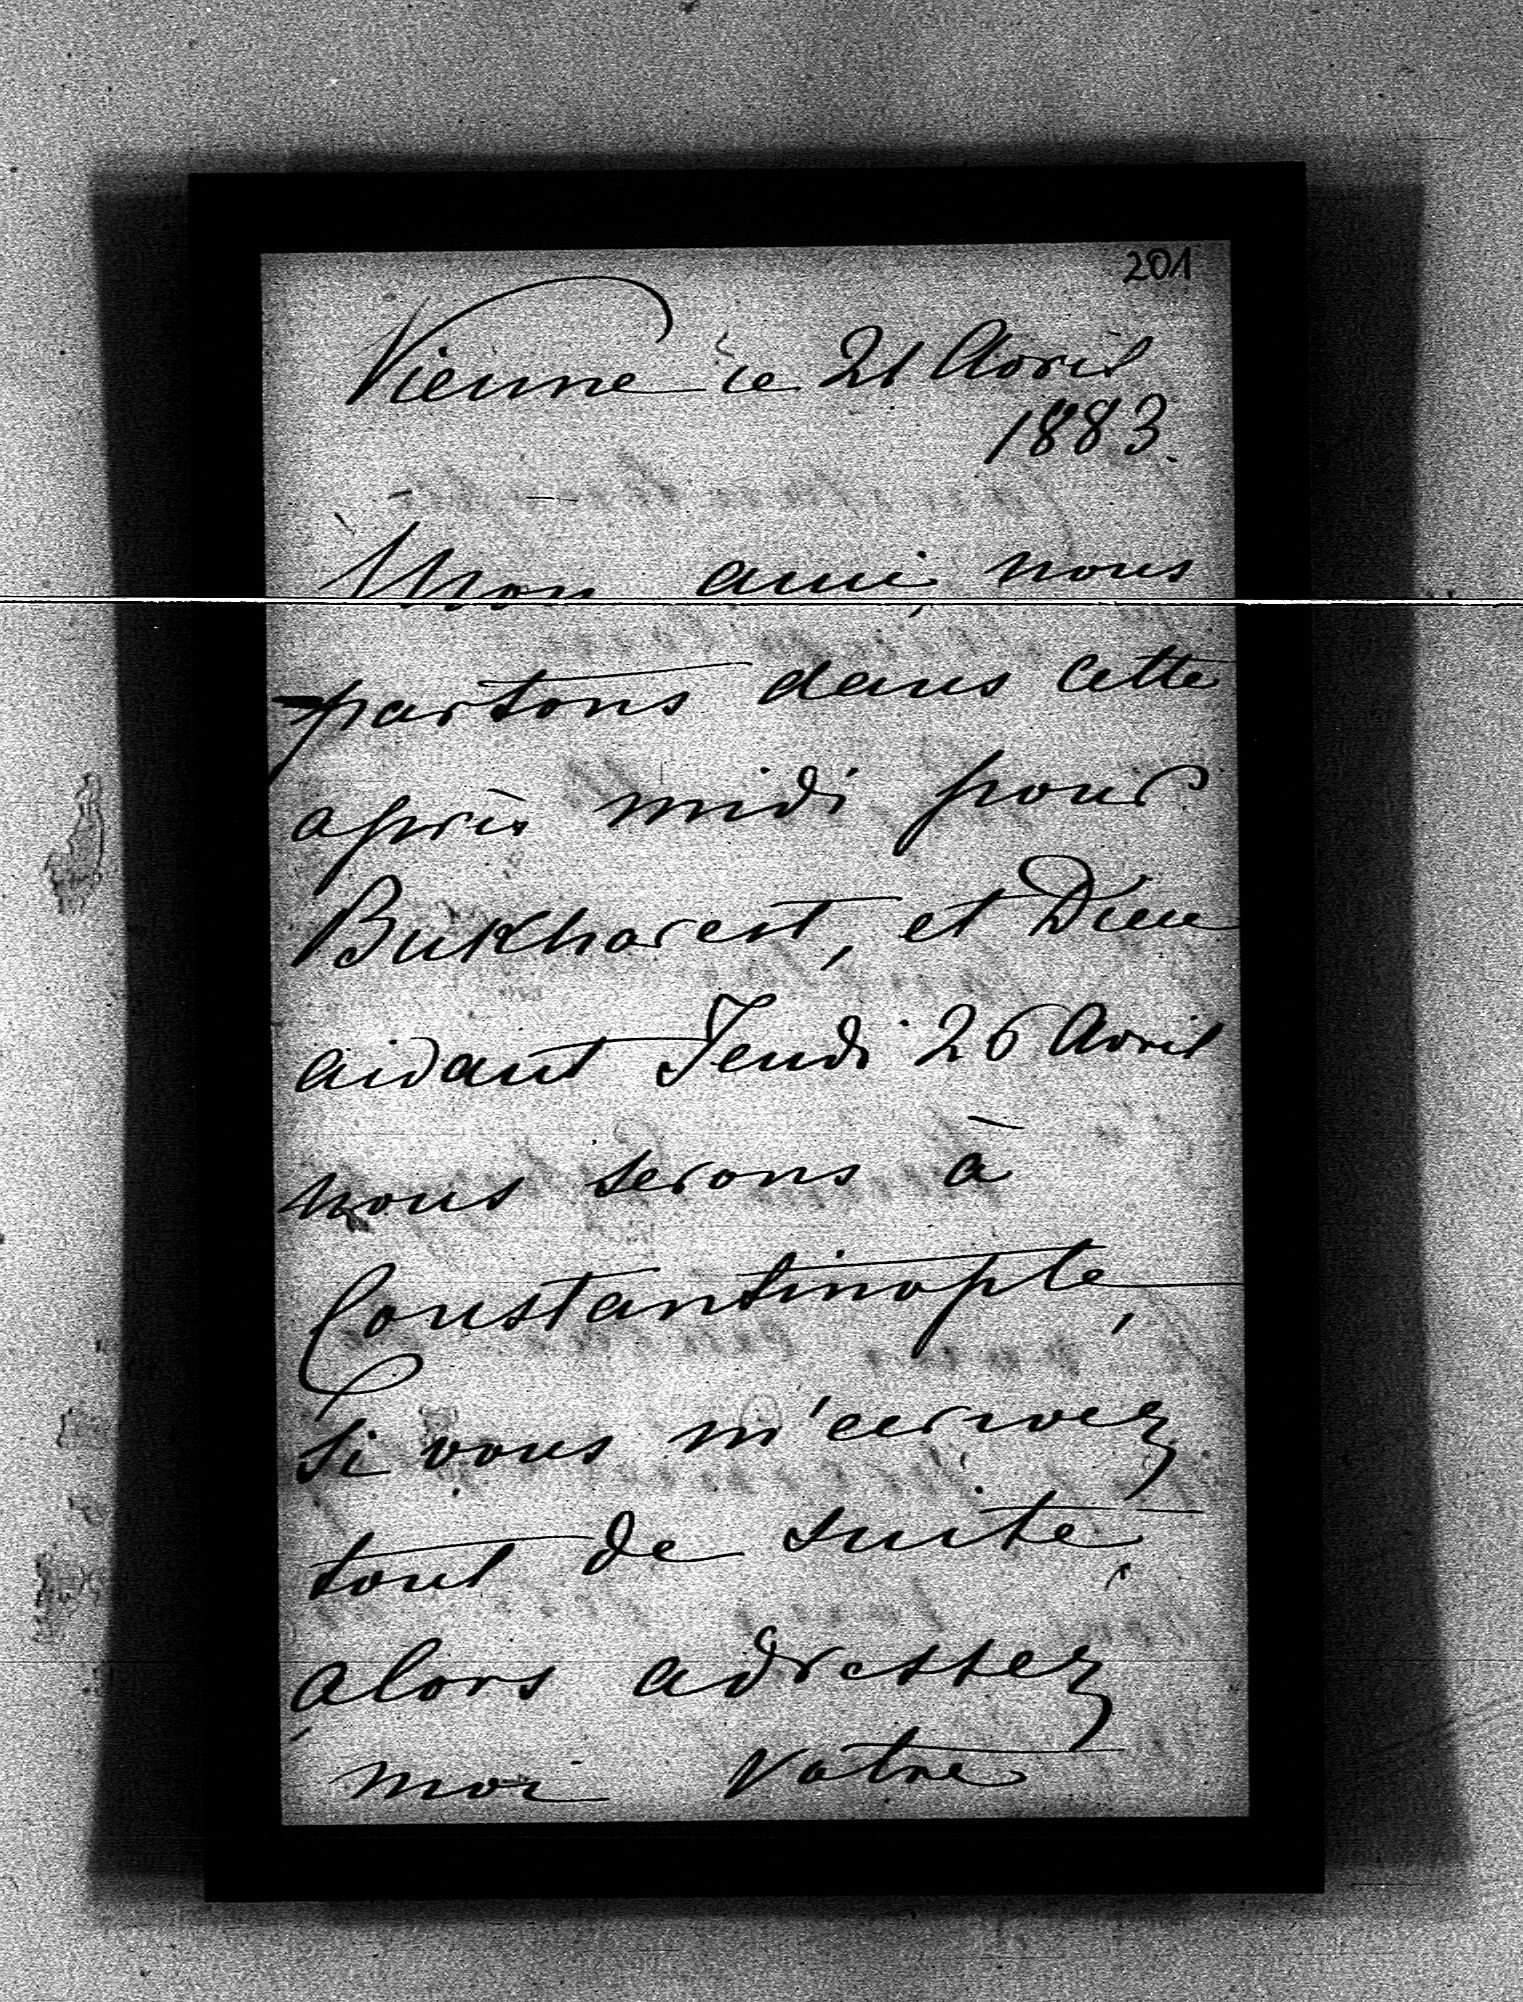 201
Vienne le 21 Avril
1883.
Mon ami, nous
partons dans cette
après midi pour
Bukharest, et Dieu
aidant Jeudi 26 Avril
nous serons à
Constantinople,
Si vous m'ecrivez
tout de suite,
alors adressez
moi Votre